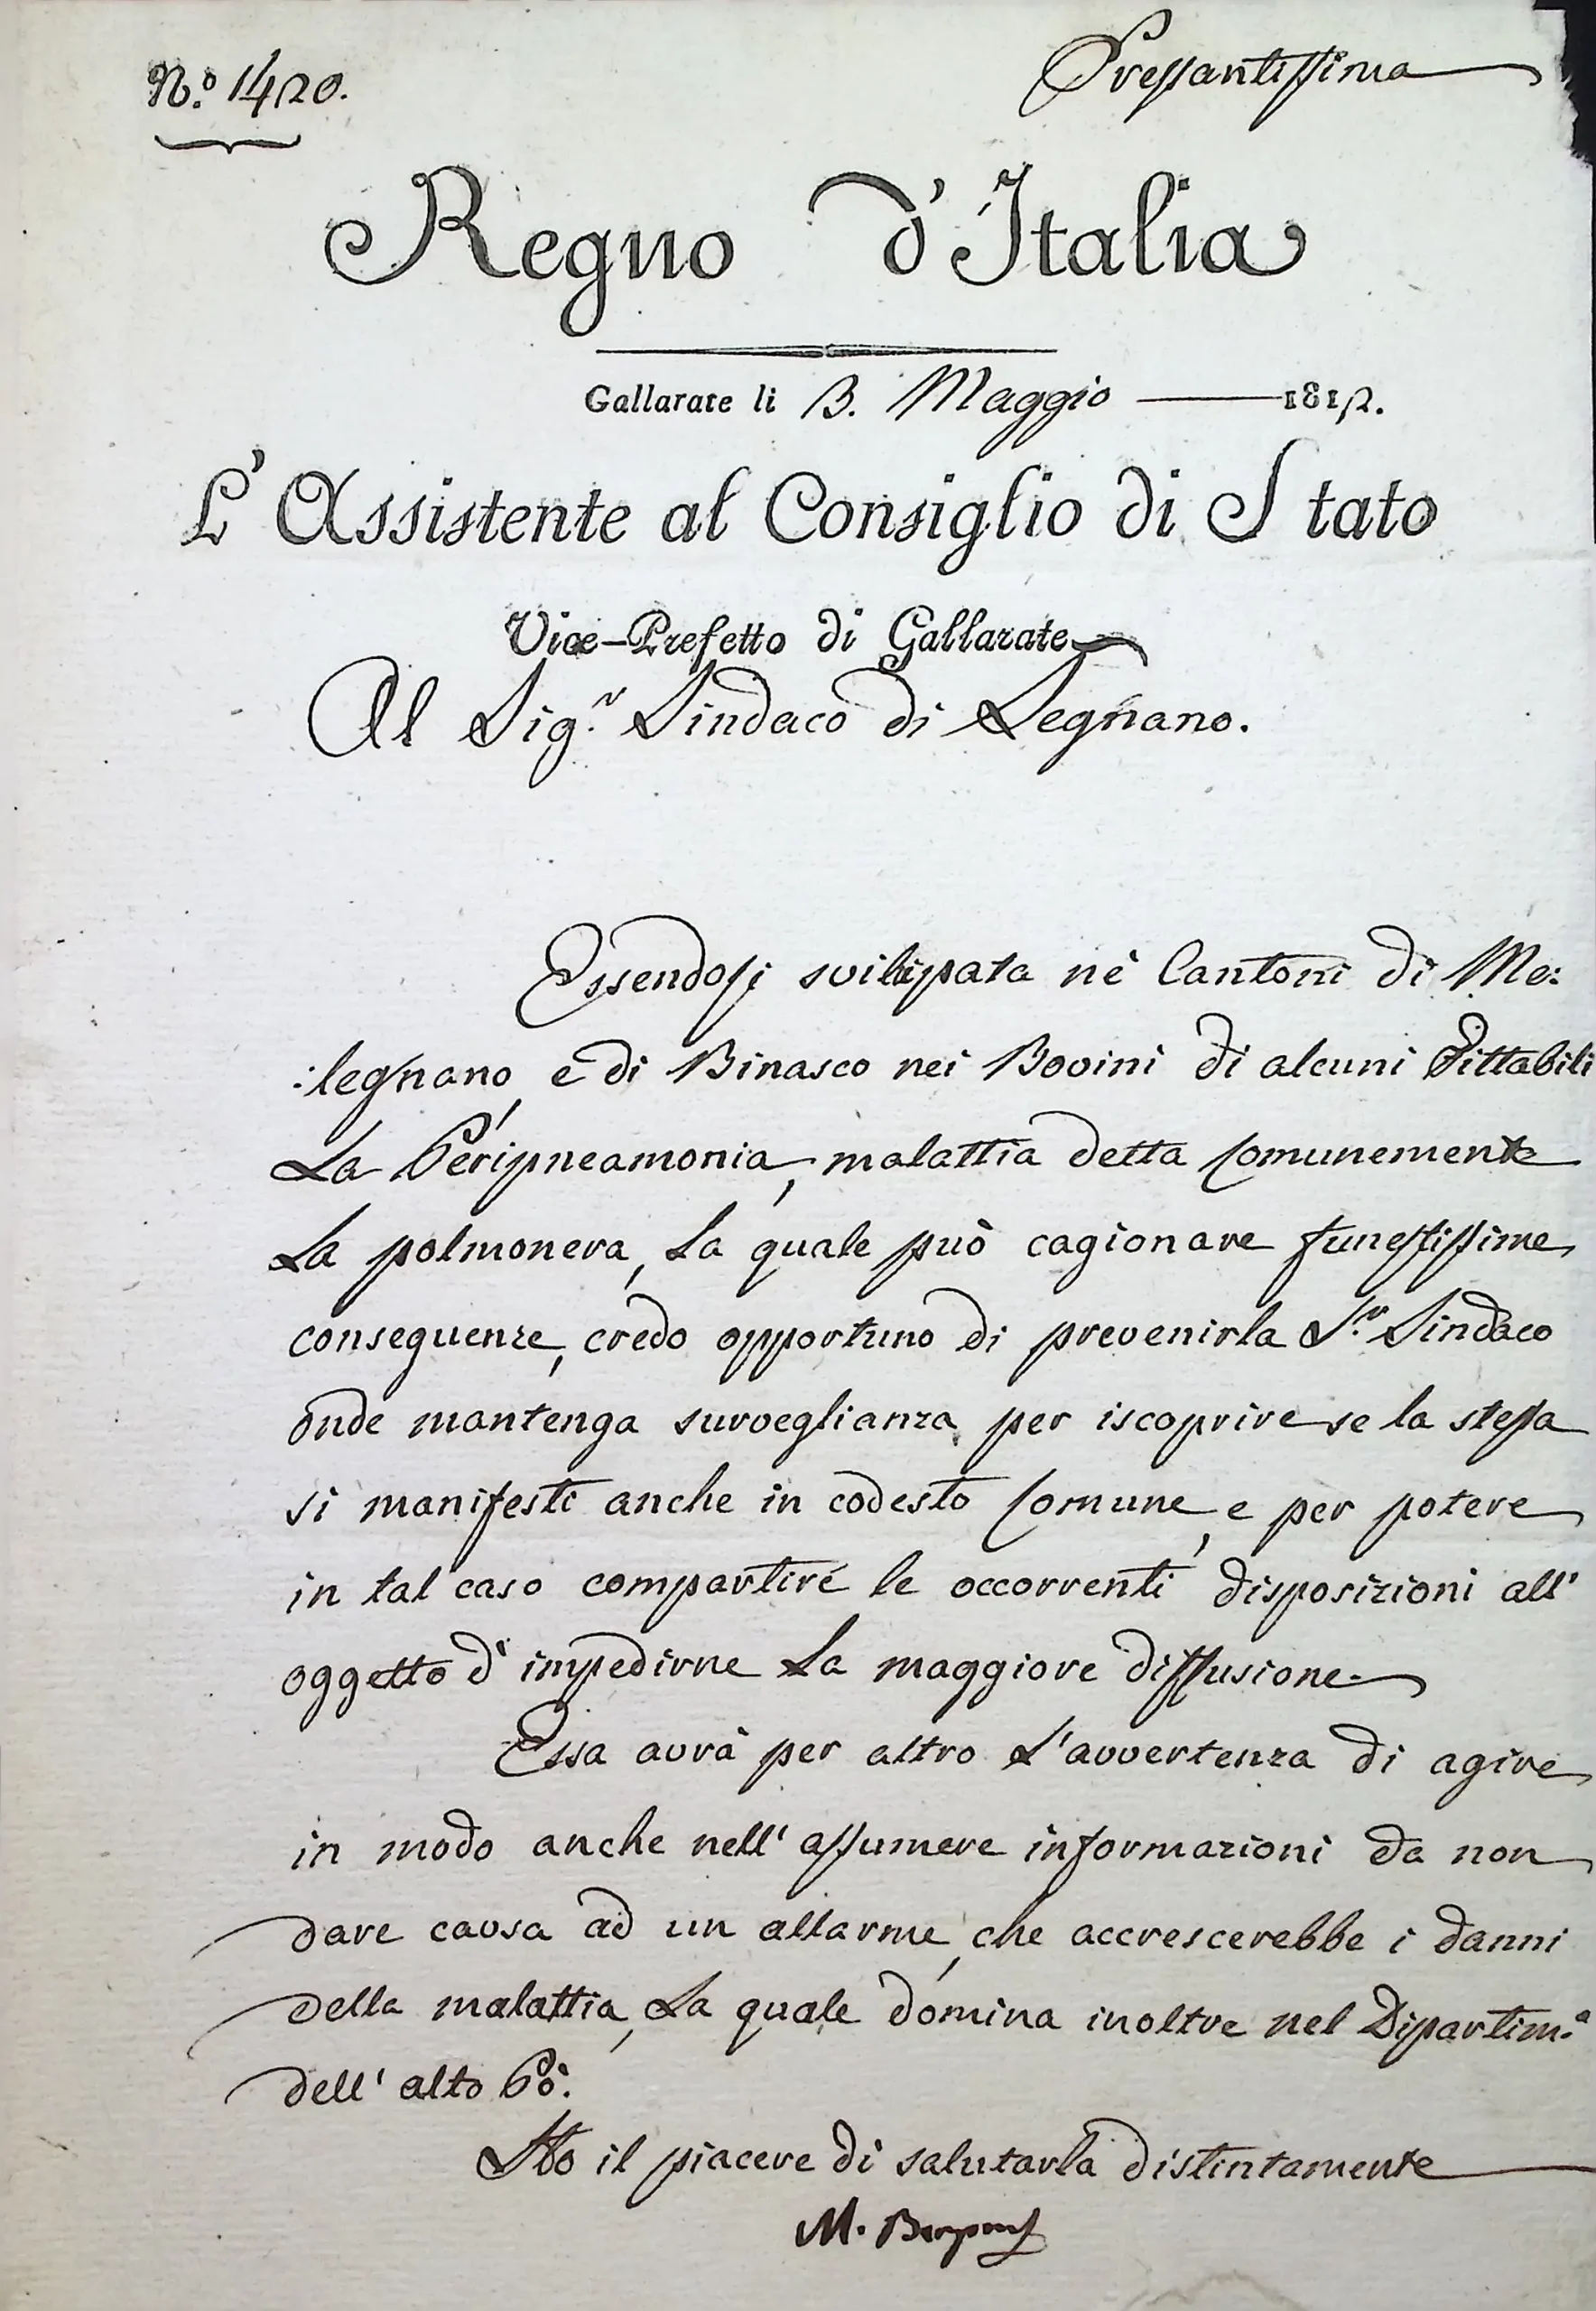 N.º 1420.
Pressantissima
Regno d'Italia
Gallarate li 3. Maggio 1812.
L'Assistente al Consiglio di Stato
Vice-Prefetto di Gallarate
Al Sig.r Sindaco di Legnano.
Essendosi svilupata nè Cantoni di Me:
:legnano, e di Binasco nei Bovini di alcuni Fittabili
La Peripneamonia, malattia detta comunemente
La polmonera, La quale può cagionare funestissime
conseguenze, credo opportuno di prevenirla S.r Sindaco
onde mantenga surveglianza per iscoprire se la stessa
si manifesti anche in codesto Comune, e per potere
in tal caso compartire le occorrenti disposizioni all'
oggetto d'impedirne La maggiore diffusione.
Essa avrà per altro L'avvertenza di agire
in modo anche nell'assumere informazioni da non
dare causa ad un allarme, che accrescerebbe i danni
della malattia, La quale domina inoltre nel Dipartim.o
dell'alto Pò.
Ho il piacere di salutarla distintamente
M.